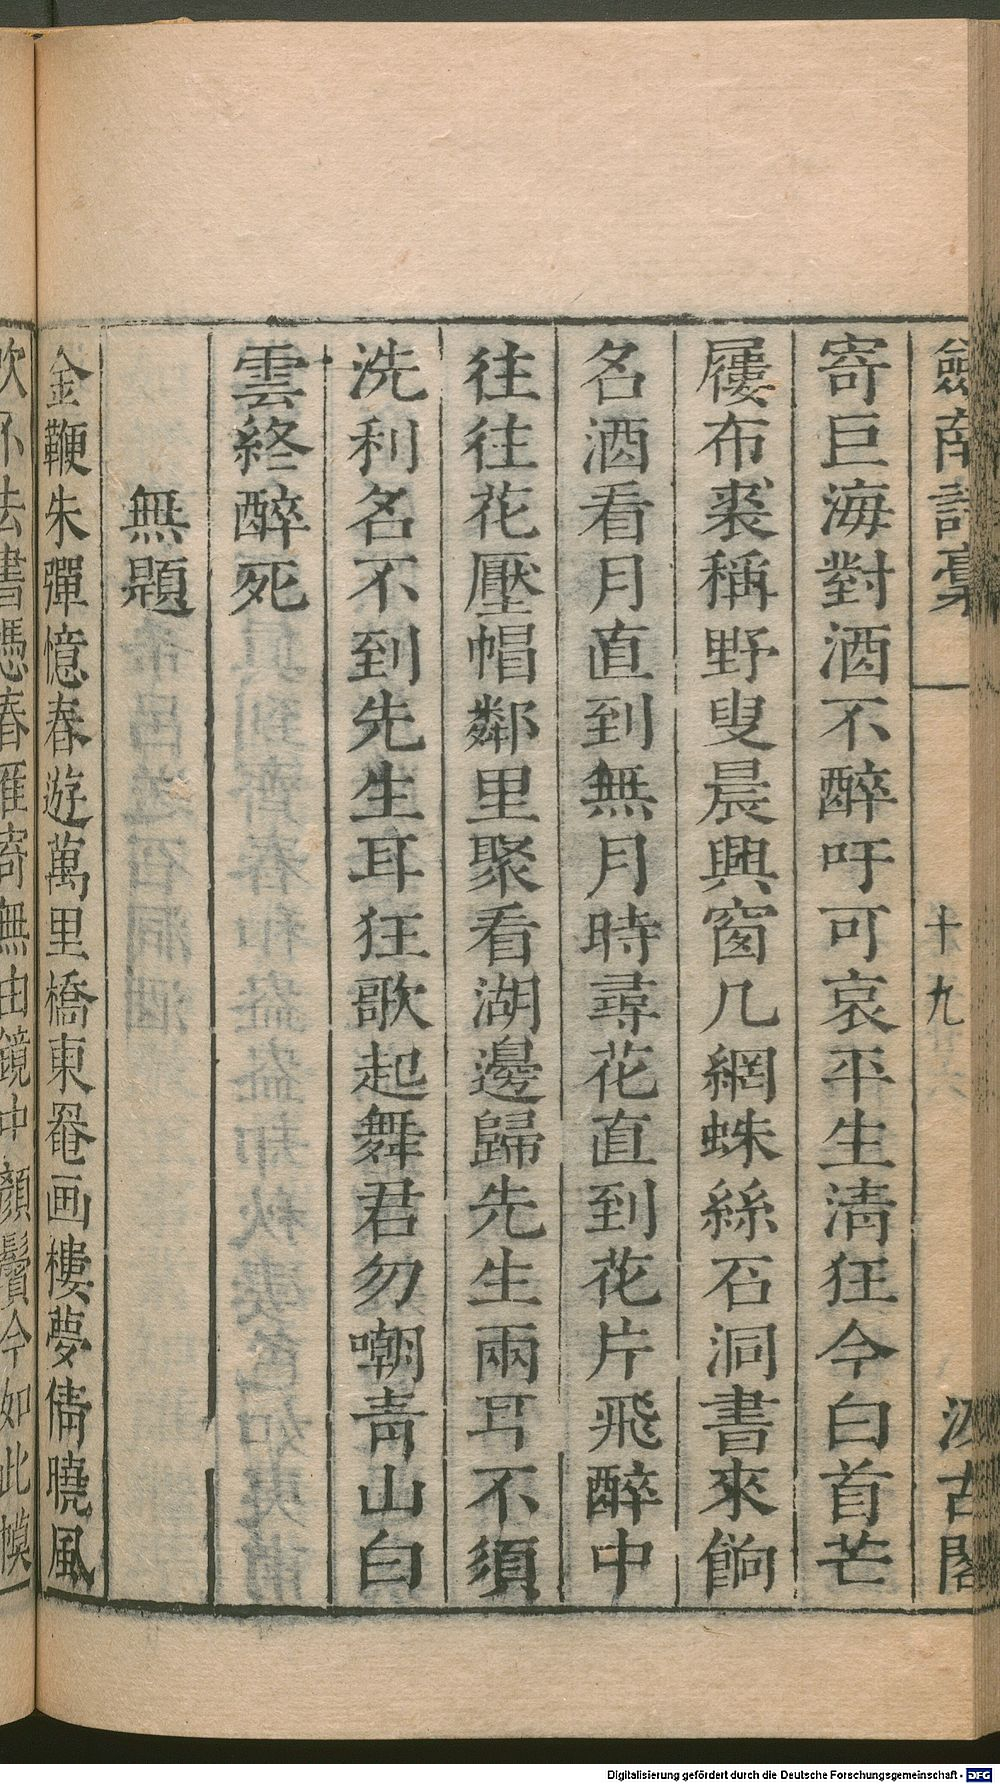 劔南詩稾 十九 汲古閣
寄巨海對酒不醉吁可哀平生清狂今白首芒
屨布裘稱野叟晨興窗几網蛛絲石洞書來餉
名酒看月直到無月時尋花直到花片飛醉中
往往花壓帽鄰里聚看湖邊歸先生兩耳不須
洗利名不到先生耳狂歌起舞君勿嘲青山白
雲終醉死
無題
金鞭朱彈憶春遊萬里橋東罨画樓夢倩曉風
吹不去書憑春雁寄無由鏡中顏鬢今如此幙
Digitalisierung gefördert durch die Deutsche Forschungsgemeinschaft - DFG